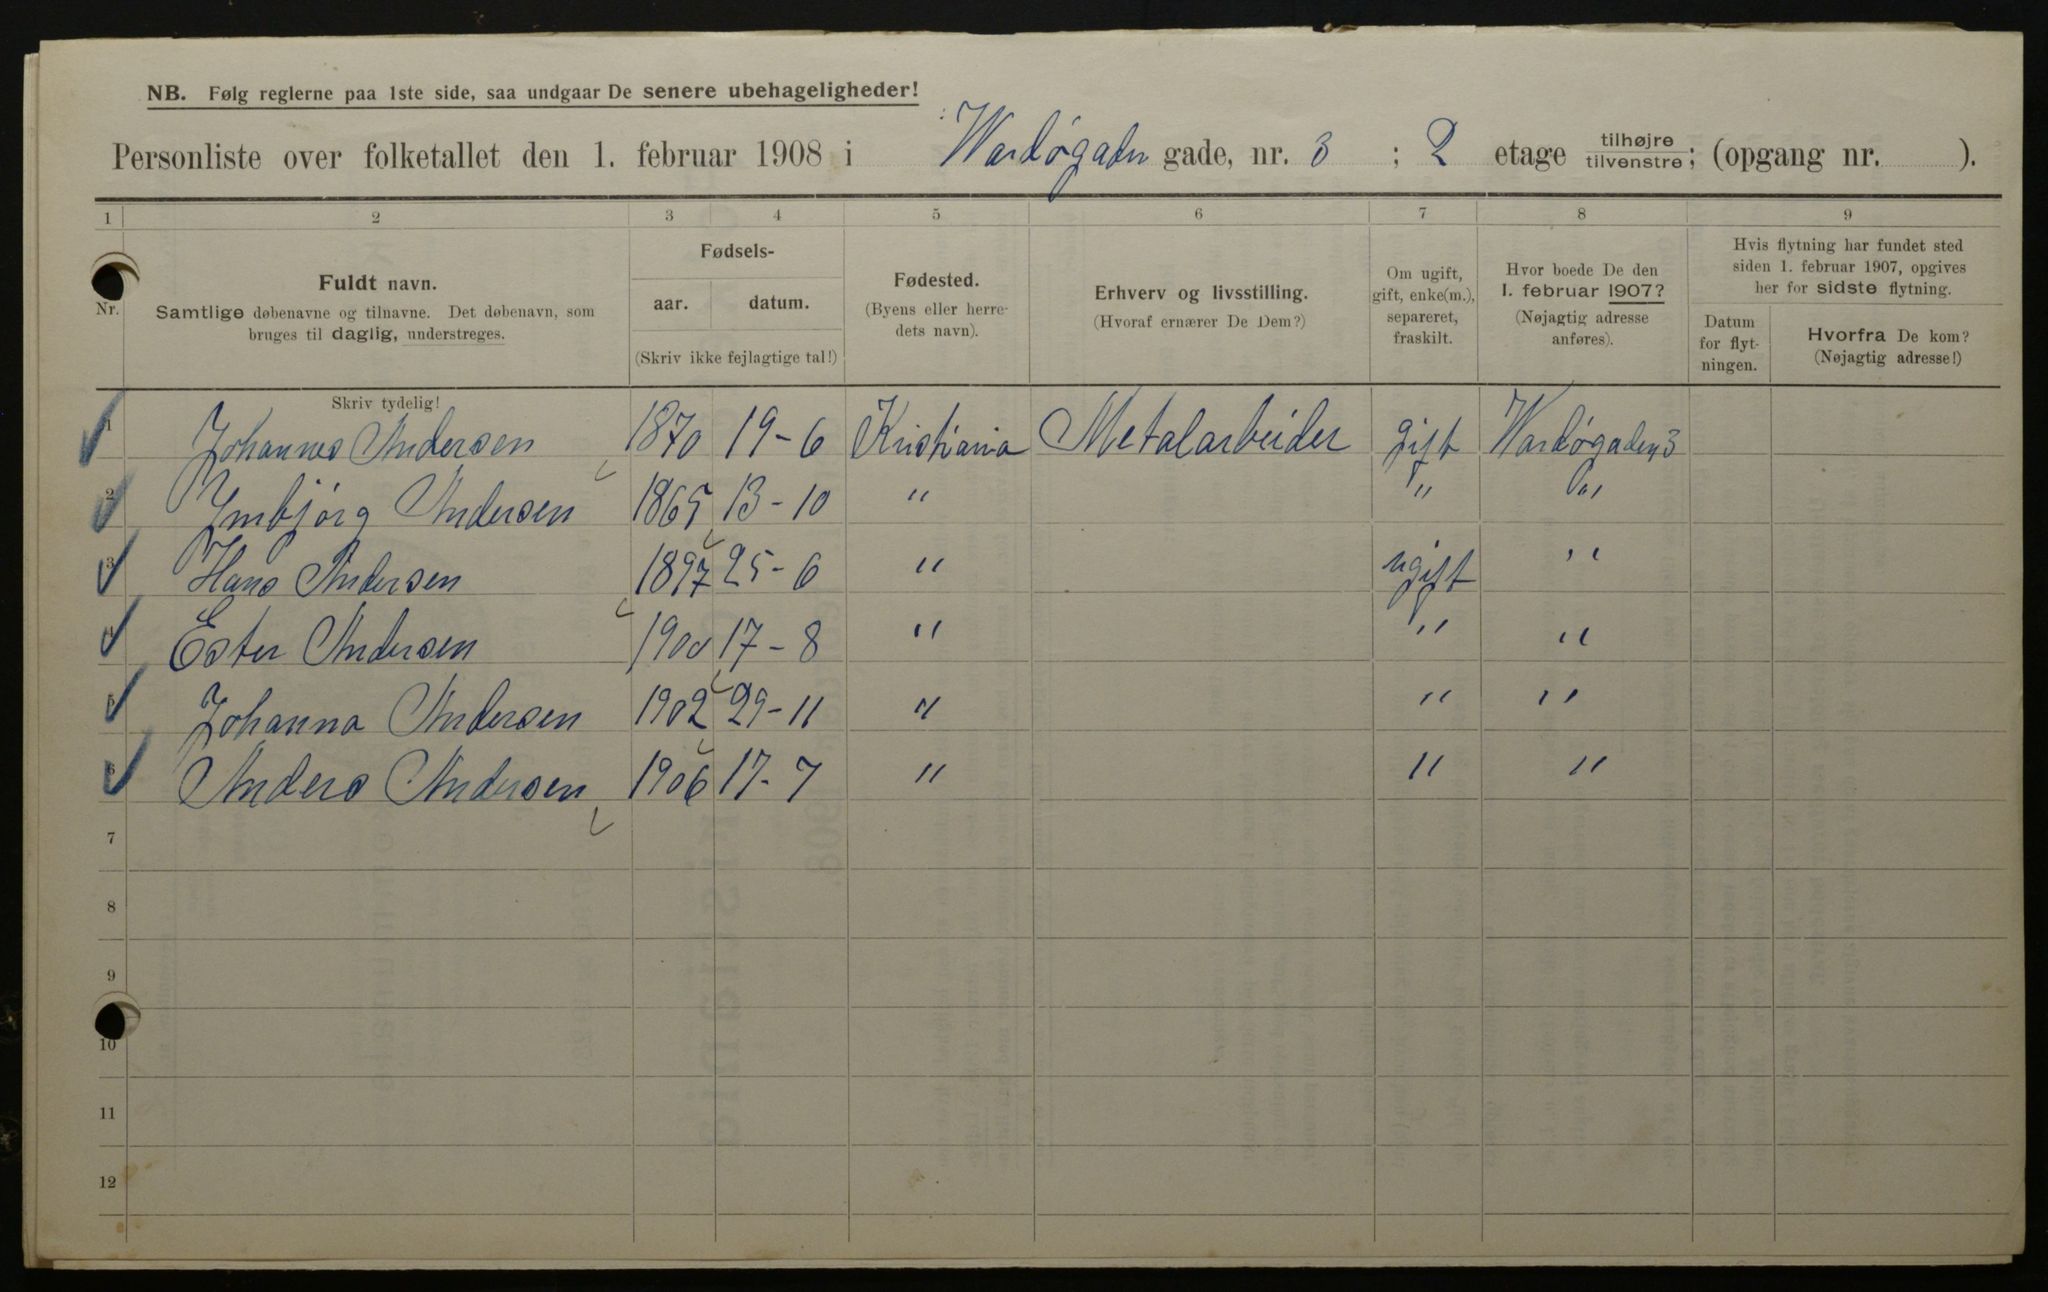 NB. Følg reglerne paa 1ste side, saa undgaar De senere ubehageligheder!
Personliste over folketallet den 1. februar 1908 i Wardøgaden gade, nr. 3 ; 2 etage tilhøjre tilvenstre; (opgang nr. ).
1 2 3 4 5 6 7 8 9
Nr.
Fuldt navn.
Samtlige døbenavne og tilnavne. Det døbenavn, som
bruges til daglig, understreges.
Fødsels-
aar. datum.
(Skriv ikke fejlagtige tal!)
Fødested.
(Byens eller herre-
dets navn).
Erhverv og livsstilling.
(Hvoraf ernærer De Dem?)
Om ugift,
gift, enke(m.),
separeret,
fraskilt.
Hvor boede De den
1. februar 1907?
(Nøjagtig adresse
anføres).
Hvis flytning har fundet sted
siden 1. februar 1907, opgives
her for sidste flytning.
Datum
for flyt-
ningen.
Hvorfra De kom?
(Nøjagtig adresse!)
Skriv tydelig!
1 Johannes Andersen 1870 19-6 Kristiania Metalarbeider gift Wardøgaden 3
2 Jnbjørg Andersen 1865 13-10 " " "
3 Hans Andersen 1897 25-6 " ugift "
4 Ester Andersen 1900 17-8 " " "
5 Johanna Andersen 1902 29-11 " " "
6 Anders Andersen 1906 17-7 " " "
7
8
9
10
11
12